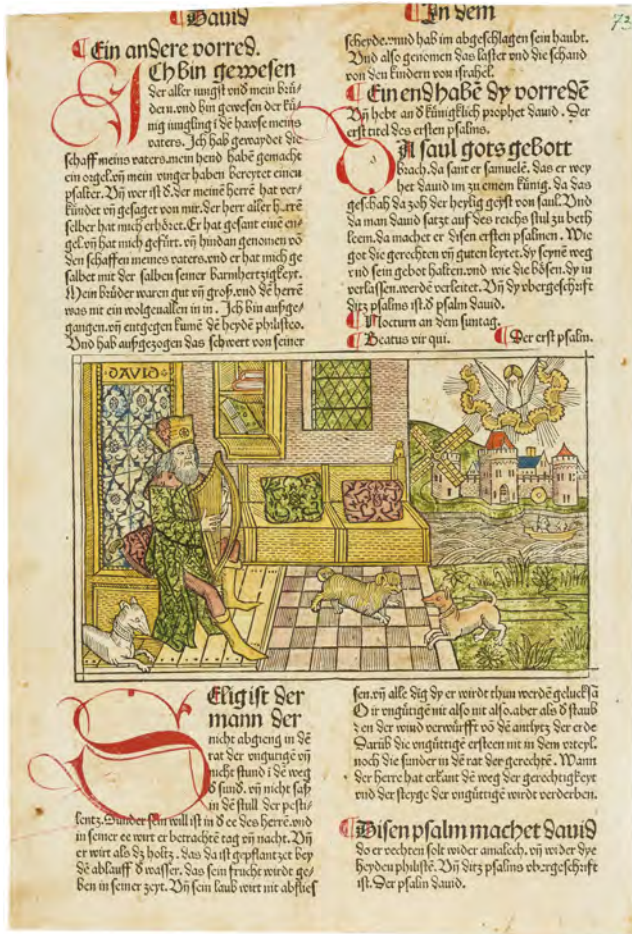 Dauid
In dem
73
Ein andere vorred.
Ich bin gewesen
der aller iungst vnd mein brü/
der. vnd bin gewesen der kü/
nig iungling i dē hawse meins
vaters. Ich hab gewaydet die
schaff meins vaters. mein hend habē gemacht
ein orgel. vn̄ mein vinger haben bereytet einen
psalter. Vn̄ wer ist d̄. der meinē herrē hat ver/
kündet vn̄ gesaget von mir. der herr aller herrē
selber hat mich erhöret. Er hat gesant einē en/
gel. vn̄ hat mich gefürt. vn̄ hindan genomen vō
den schaffen meines vaters. vnd er hat mich ge
salbet mit der salben seiner barmhertzigkeyt.
Mein brüder waren gut vn̄ groß. vnd dē herrē
was nit ein wolgeuallen in in. Ich bin außge/
gangen. vn̄ entgegen kumē dē heydē philisteo.
Vnd hab außgezogen das schwert von seiner
scheyde. vnd hab im abgeschlagen sein haubt.
Vnd also genomen das laster vnd die schand
von den kindern von israhel.
Ein end habē dy vorredē
Vn̄ hebt an d̄ küniglich prophet dauid. Der
erst titel des ersten psalms.
Da saul gots gebott
brach. da sant er samuelē. das er wey
het dauid im zu einem künig. da das
geschah da zoh der heylig geyst von saul. Vnd
da man dauid satzt auf des reichs stul zu beth
leem. da machet er disen ersten psalmen. Wie
got die gerechten vn̄ guten leytet. dy seynē weg
vnd sein gebot halten. vnd wie die bösen. dy in
verlassen. werdē verleitet. Vn̄ dy vbergeschrift
ditz psalms ist. d̄ psalm dauid.
Nocturn an dem suntag.
Beatus vir qui. Der erst psalm.
DAVID
Selig ist der
mann der
nicht abgieng in dē
rat der vngutigē vn̄
nicht stund i dē weg
d̄ sund. vn̄ nicht saß
in dē stull der pesti/
lentz. Sunder sein will ist in d̄ ee des herrē. vnd
in seiner ee wirt er betrachtē tag vn̄ nacht. Vn̄
er wirt als dz holtz. das da ist gepflantzet bey
dē ablauff d̄ wasser. das sein frucht wirdt ge/
ben in seiner zeyt. Vn̄ sein laub wirt nit abflies
sen. vn̄ alle dig dy er wirdt thun werdē gelucksā
O ir vngütigē nit also nit also. aber als d̄ staub
den der wind verwürfft vō dē antlytz der erde
Darūb die vngüttige ersteen nit in dem vrteyl.
noch die sunder in dē rat der gerechtē. Wann
der herre hat erkant dē weg der gerechtigkeyt
vnd der steyge der vngüttigē wirdt verderben.
Disen psalm machet dauid
do er vechten solt wider amalech. vn̄ wider dye
heyden philistē. Vn̄ ditz psalms vbergeschrift
ist. Der psalm dauid.